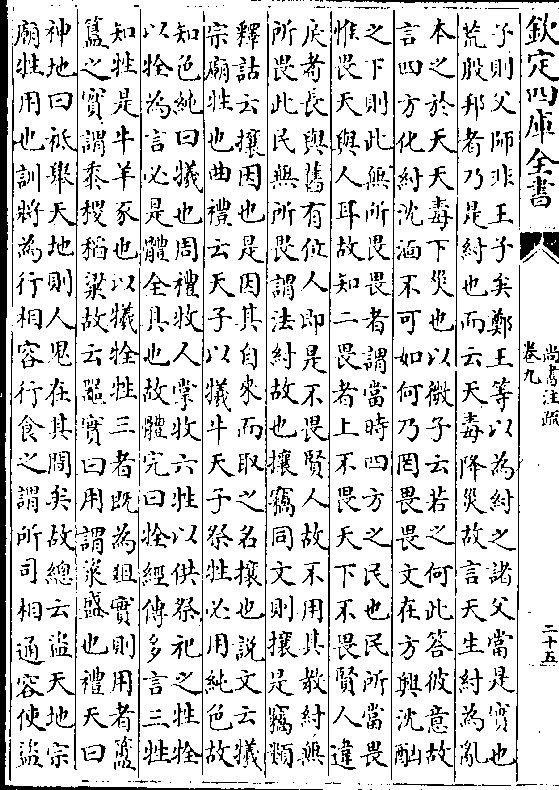 欽定四庫全書
尚書注疏
卷九
二十五
子則父師非王子矣鄭王等以為紂之諸父當是實也
荒殷邦者乃是紂也而云天毒降災故言天生紂為亂
本之於天天毒下災也以微子云若之何此答彼意故
言四方化紂沈湎不可如何乃罔畏畏文在方興沈酗
之下則此無所畏畏者謂當時四方之民也民所當畏
惟畏天與人耳故知二畏者上不畏天下不畏賢人違
戾耇長與舊有位人即是不畏賢人故不用其教紂無
所畏此民無所畏謂法紂故也攘竊同文則攘是竊類
釋詁云攘因也是因其自來而取之名攘也説文云犧
宗廟牲也曲禮云天子以犧牛天子祭牲必用純色故
知色純曰犧也周禮牧人掌牧六牲以供祭祀之牲牷
以牷為言必是體全具也故體完曰牷經傳多言三牲
知牲是牛羊豕也以犧牷牲三者既為俎實則用者簠
簋之實謂黍稷稻粱故云器實曰用謂粢盛也禮天曰
神地曰祇舉天地則人鬼在其間矣故總云盜天地宗
廟牲用也訓將為行相容行食之謂所司相通容使盜